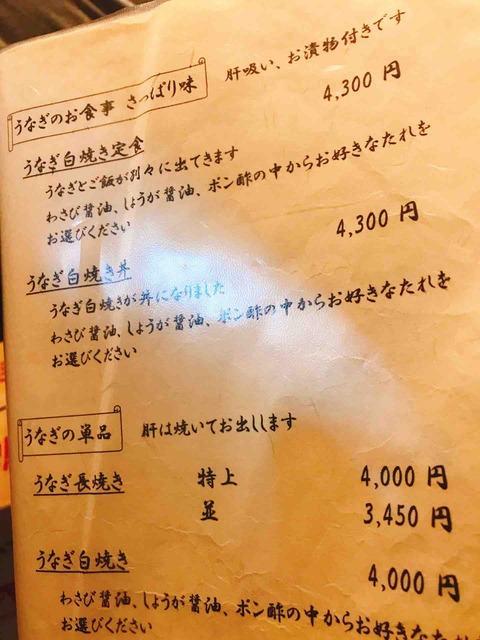 うなぎのお食事 さっぱり味 肝吸い、お漬物付きです
うなぎ白焼き定食 4,300 円
うなぎとご飯が別々に出てきます
わさび醤油、しょうが醤油、ポン酢の中からお好きなたれを
お選びください
うなぎ白焼き丼 4,300 円
うなぎ白焼きが丼になりました
わさび醤油、しょうが醤油、ポン酢の中からお好きなたれを
お選びください
うなぎの単品 肝は焼いてお出しします
うなぎ長焼き 特上 4,000 円
並 3,450 円
うなぎ白焼き 4,000 円
わさび醤油、しょうが醤油、ポン酢の中からお好きなたれ
お選びください